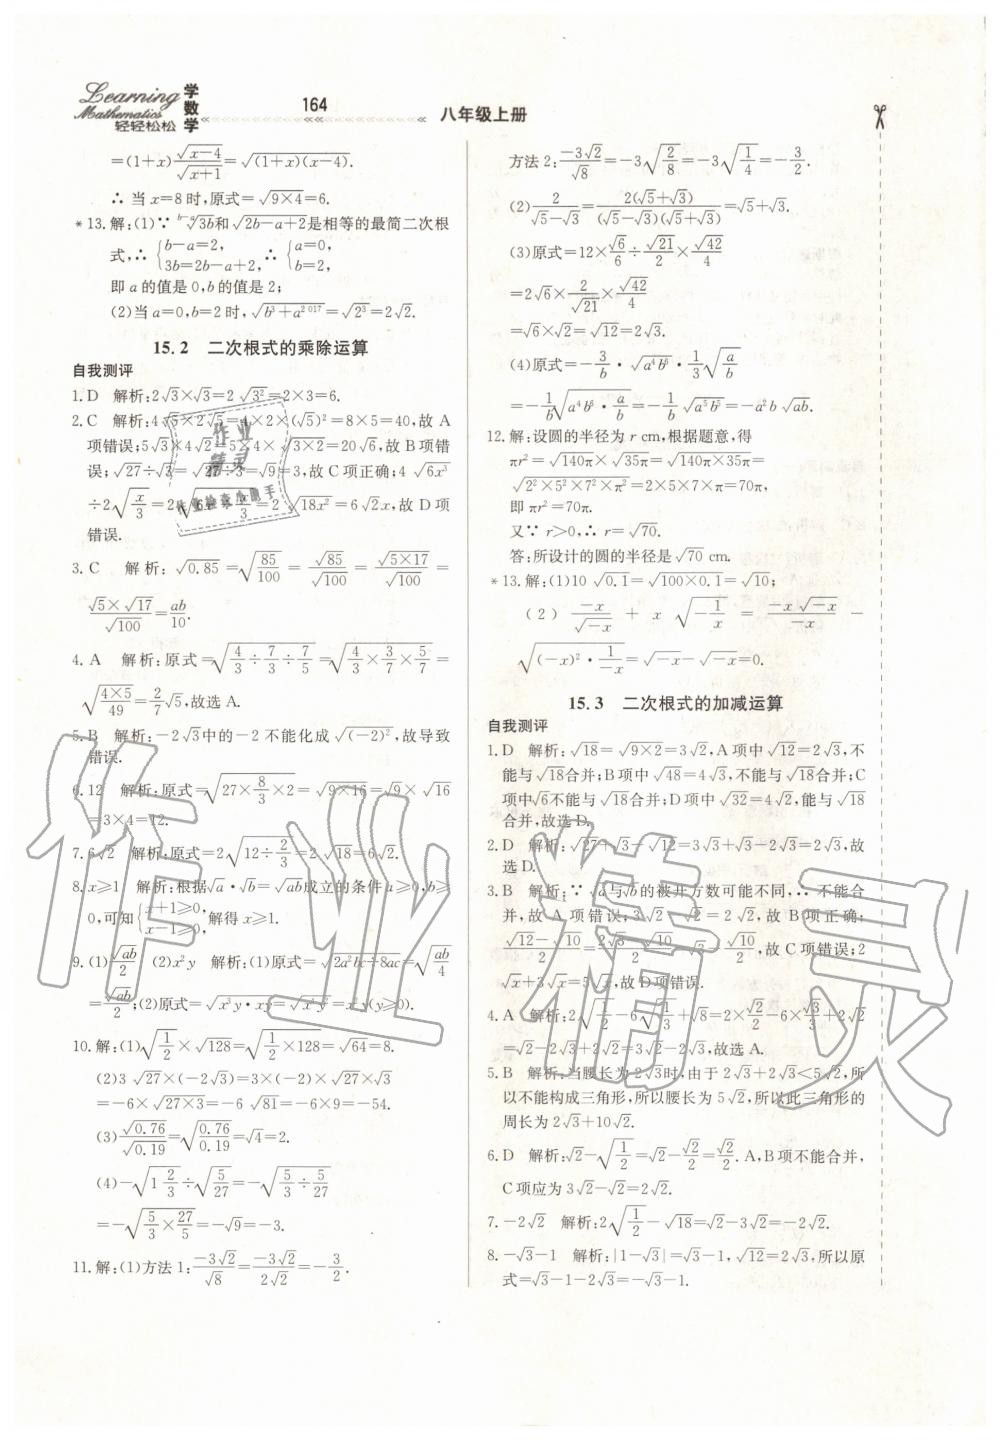 Learning
Mathematics
轻轻松松
学数学
164
八年级上册
=(1+x)√(x-4)/√(x+1)=√((1+x)(x-4)).
∴当x=8时,原式=√(9×4)=6.
*13.解:(1)∵ ᵇ⁻ᵃ√(3b)和√(2b-a+2)是相等的最简二次根
式,∴{b-a=2, 3b=2b-a+2, ∴{a=0, b=2,
即a的值是0,b的值是2;
(2)当a=0,b=2时,√(b³+a²⁰¹⁷)=√(2³)=2√2.
15.2 二次根式的乘除运算
自我测评
1.D 解析:2√3×√3=2√(3²)=2×3=6.
2.C 解析:4√5×2√5=4×2×(√5)²=8×5=40,故A
项错误;5√3×4√2=5×4×√(3×2)=20√6,故B项错
误;√27÷√3=√(27÷3)=√9=3,故C项正确;4√(6x³)
÷2√(x/3)=2√(6x³÷x/3)=2√(18x²)=6√2x,故D项
错误.
3.C 解析:√0.85=√(85/100)=√85/√100=√(5×17)/√100=
√5×√17/√100=ab/10.
4.A 解析:原式=√(4/3÷7/3÷7/5)=√(4/3×3/7×5/7)=
√(4×5/49)=2/7√5,故选A.
5.B 解析:-2√3中的-2不能化成√((-2)²),故导致
错误.
6.12 解析:原式=√(27×8/3×2)=√(9×16)=√9×√16
=3×4=12.
7.6√2 解析:原式=2√(12÷2/3)=2√18=6√2.
8.x≥1 解析:根据√a·√b=√ab成立的条件a≥0,b≥
0,可知{x+1≥0, x-1≥0, 解得x≥1.
9.(1)√ab/2 (2)x²y 解析:(1)原式=√(2a²bc÷8ac)=√(ab/4)
=√ab/2;(2)原式=√(x³y·xy)=√(x⁴y²)=x²y(y≥0).
10.解:(1)√(1/2)×√128=√(1/2×128)=√64=8.
(2)3√27×(-2√3)=3×(-2)×√27×√3
=-6×√(27×3)=-6√81=-6×9=-54.
(3)√0.76/√0.19=√(0.76/0.19)=√4=2.
(4)-√(1 2/3)÷√(5/27)=-√(5/3÷5/27)
=-√(5/3×27/5)=-√9=-3.
11.解:(1)方法1:-3√2/√8=-3√2/2√2=-3/2.
方法2:-3√2/√8=-3√(2/8)=-3√(1/4)=-3/2.
(2)2/(√5-√3)=2(√5+√3)/((√5-√3)(√5+√3))=√5+√3.
(3)原式=12×√6/6÷√21/2×√42/4
=2√6×2/√21×√42/4
=√6×√2=√12=2√3.
(4)原式=-3/b·√(a⁴b⁶)·1/3√(a/b)
=-1/b√(a⁴b⁶·a/b)=-1/b√(a⁵b⁵)=-a²b√ab.
12.解:设圆的半径为r cm,根据题意,得
πr²=√140π×√35π=√(140π×35π)=
√(2²×5²×7²×π²)=2×5×7×π=70π.
即πr²=70π.
又∵r>0,∴r=√70.
答:所设计的圆的半径是√70 cm.
*13.解:(1)10√0.1=√(100×0.1)=√10;
(2) -x/√-x + x√(-1/x) = -x√-x/-x -
√((-x)²·1/-x)=√-x-√-x=0.
15.3 二次根式的加减运算
自我测评
1.D 解析:√18=√(9×2)=3√2,A项中√12=2√3,不
能与√18合并;B项中√48=4√3,不能与√18合并;C
项中√6不能与√18合并;D项中√32=4√2,能与√18
合并,故选D.
2.D 解析:√27+√3-√12=3√3+√3-2√3=2√3,故
选D.
3.B 解析:∵√a与√b的被开方数可能不同,∴不能合
并,故A项错误;3√2-√2=2√2,故B项正确;
(√12-√10)/2=(2√3-√10)/2=√3-√10/2,故C项错误;2
√x+3√x=5√x,故D项错误.
4.A 解析:2√(1/2)-6√(1/3)+√8=2×√2/2-6×√3/3+2√2
=√2-2√3+2√2=3√2-2√3,故选A.
5.B 解析:当腰长为2√3时,由于2√3+2√3<5√2,所
以不能构成三角形,所以腰长为5√2,所以此三角形的
周长为2√3+10√2.
6.D 解析:√2-√(1/2)=√2-√2/2=√2/2.A,B项不能合并,
C项应为3√2-√2=2√2.
7.-2√2 解析:2√(1/2)-√18=√2-3√2=-2√2.
8.-√3-1 解析:|1-√3|=√3-1,√12=2√3,所以原
式=√3-1-2√3=-√3-1.
作业精灵
作业
精灵
作业检查小助手